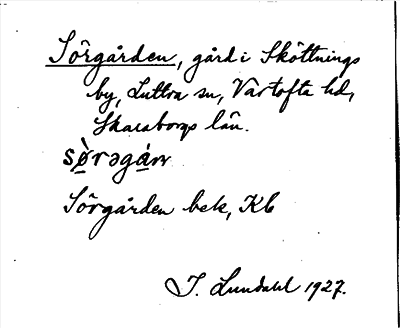 Sörgården, gård i Sköttnings
by, Luttra sn, Vartofta hd,
Skaraborgs län.
sø̀rəgán
Sörgården bek, Kb
I. Lundahl 1927.